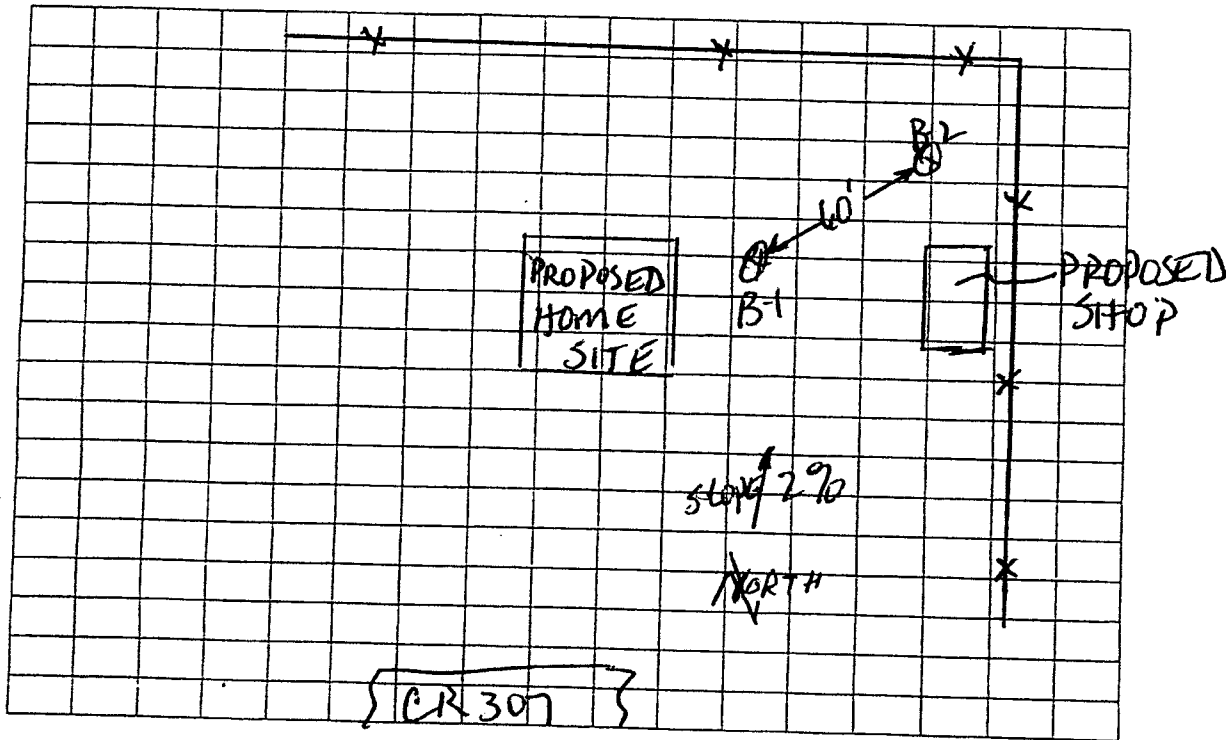 B-2
60'
PROPOSED
HOME
SITE
B-1
PROPOSED
SHOP
SLOPE 2%
NORTH
CR 307